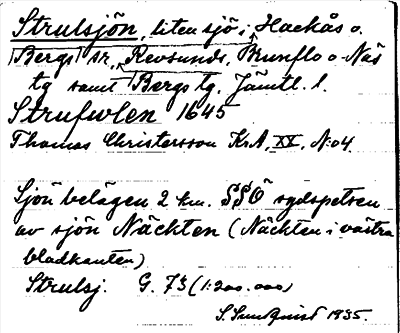 Strulsjön, liten sjö i Hackås o.
Bergs sr, Revsunds, Brunflo o Näs
tg samt Bergs tg, Jämtl. l.
Strufwlen 1645
Thomas Christersson KrA, XX, N:o 4.
Sjön belägen 2 km. SSÖ sydspetsen
av sjön Näckten (Näckten i västra
bladkanten)
Strulsj. G. 73 (1:200.000)
S. Sundquist 1935.